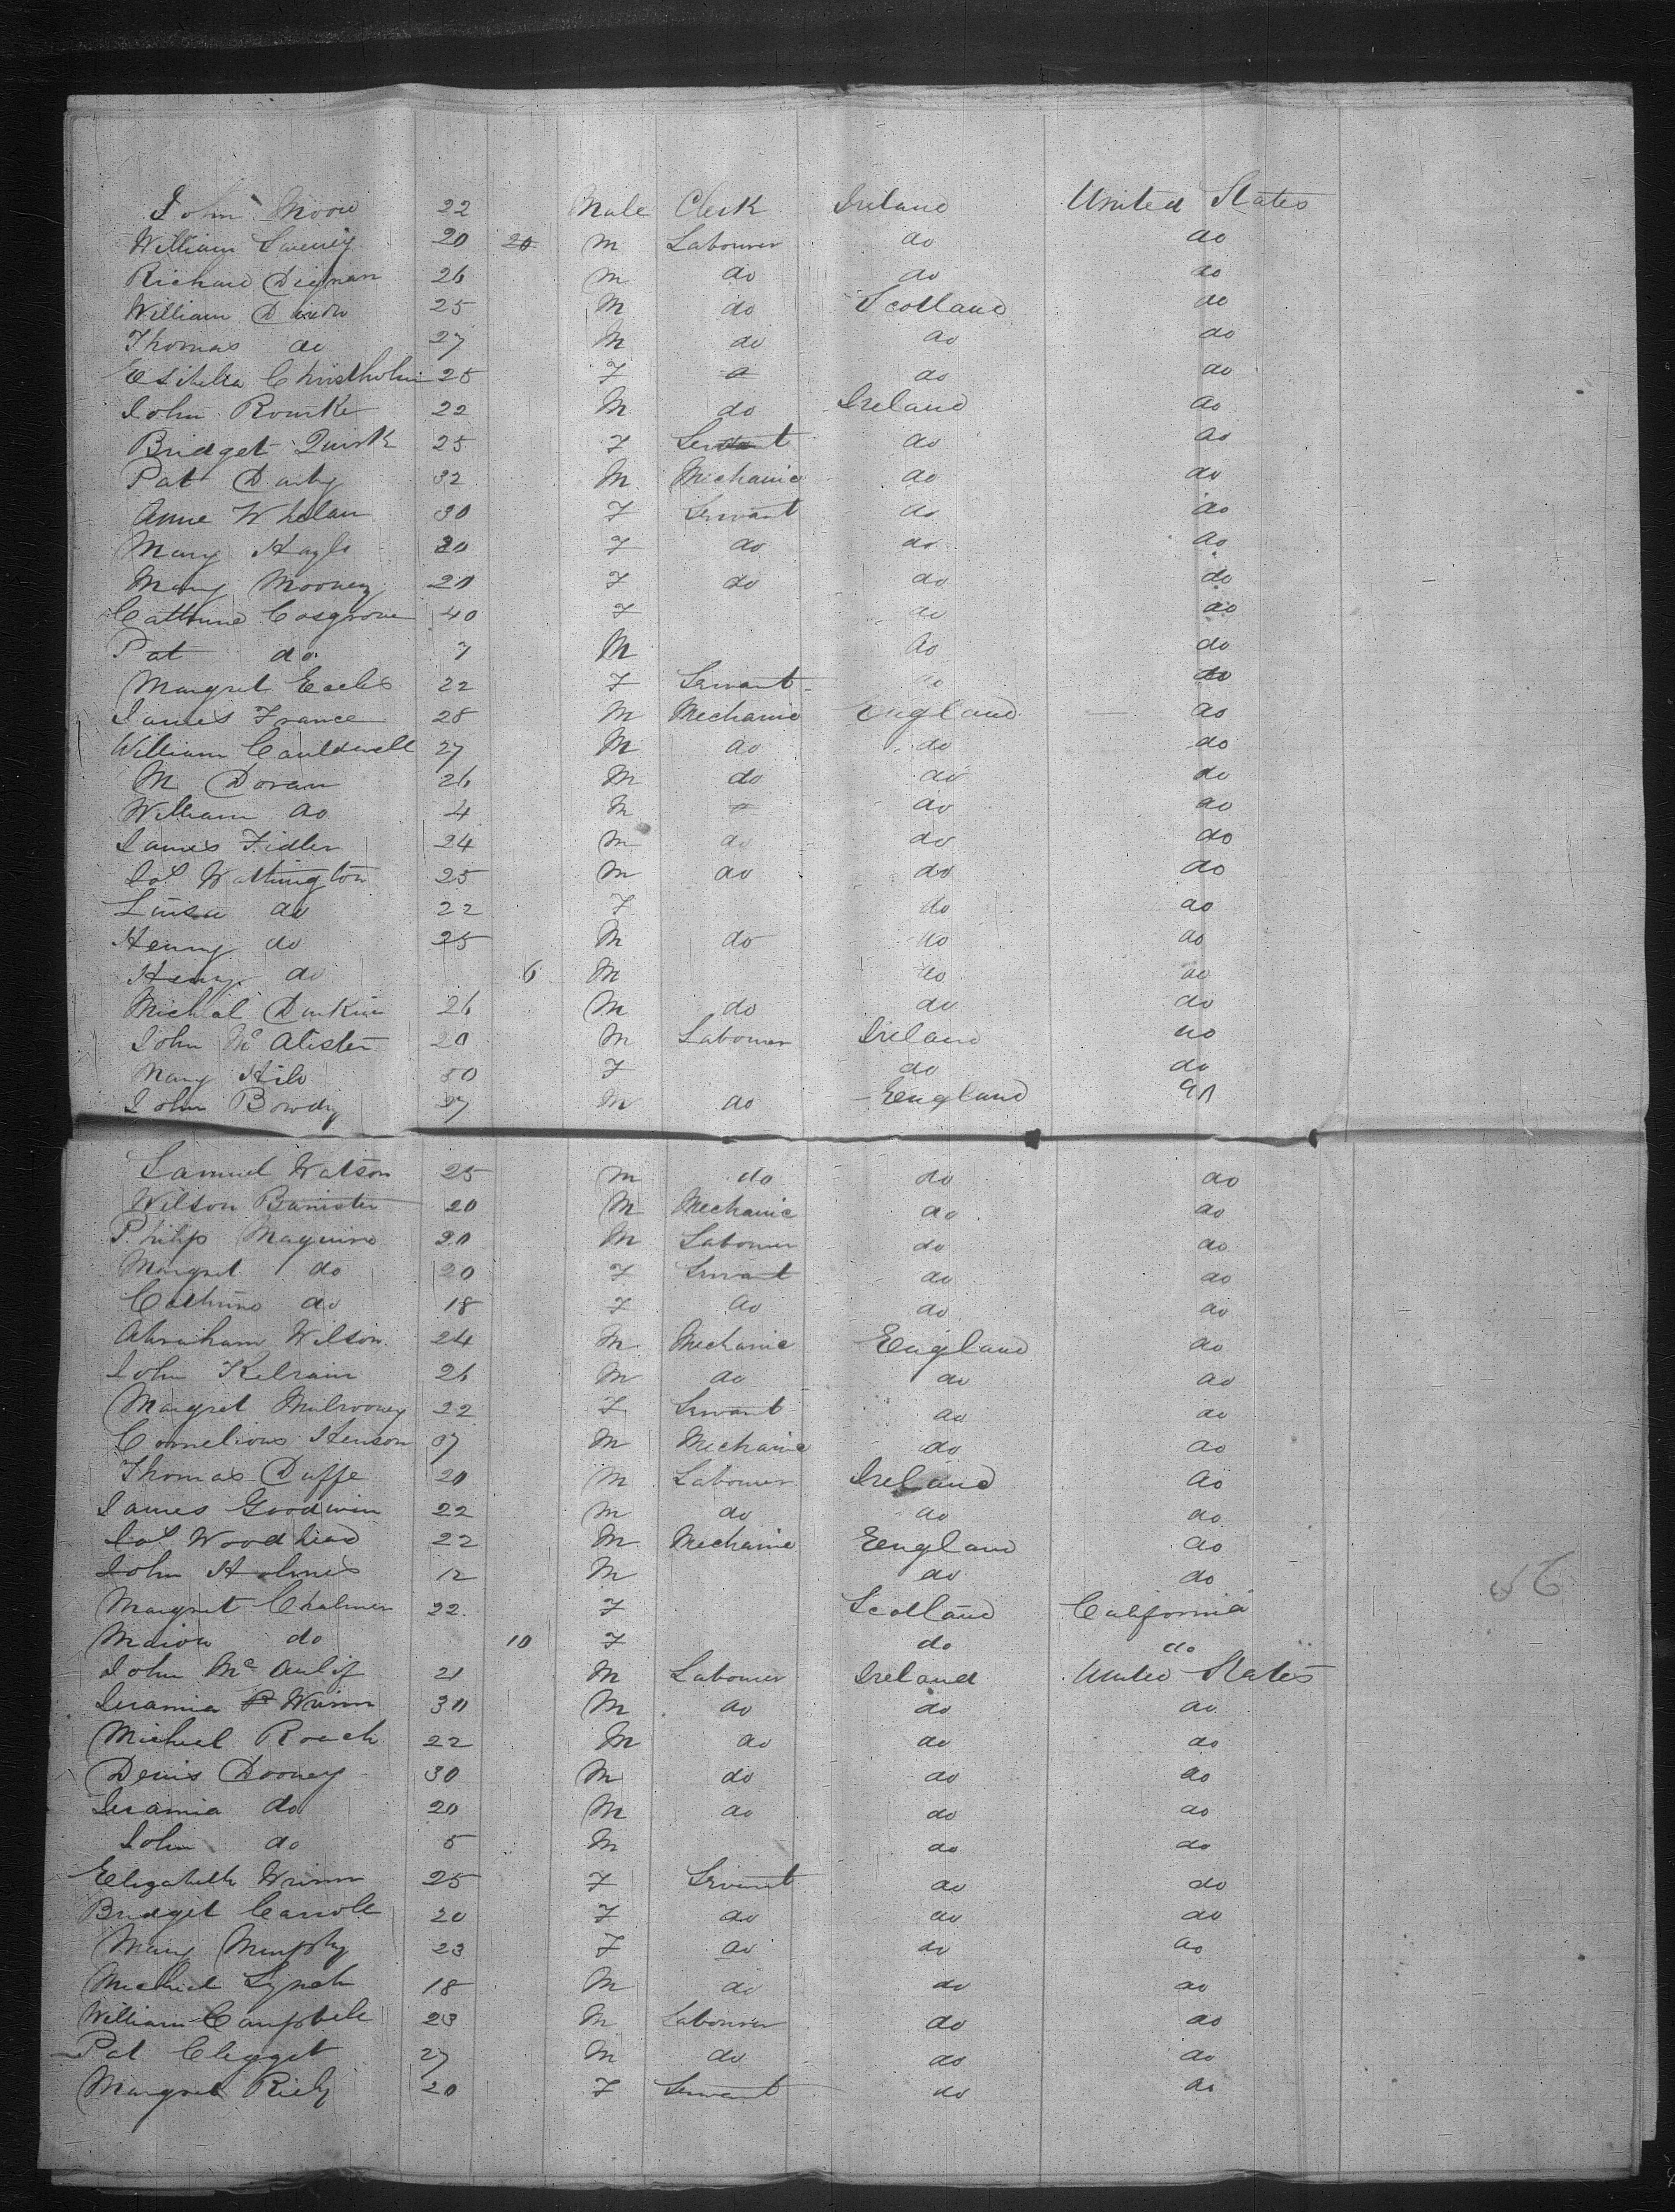 John Moore 22 Male Clerk Ireland United States
William Sweeny 20 20 M Labourer do do
Richard Dignan 26 M do do do
William Dixon 25 M do Scotland do
Thomas do 27 M do do do
Chrisholm 25 F do do
John Rourke 22 M do Ireland do
Bridget Quirk 25 F Servant do do
Pat Darby 32 M Mechanic do do
Anne Whelan 30 F Servant do do
Mary 20 F do do do
Mary Mooney 20 F do do do
Cathrine Cosgrove 40 F do do
Pat do 7 M do do
Margret Eccles 22 F Servant do do
James France 28 M Mechanic England do
William Cauldwell 27 M do do do
M Doran 26 M do do do
William do 4 M do do
James Fidler 24 M do do do
Jos Wathington 25 M do do do
Luisa do 22 F do do
Henry do 25 M do do do
Henry do 6 M do do
Michal Durkin 26 M do do do
John Mc Alister 20 M Labourer Ireland do
Mary 50 F do do
John Bowdy 27 M do England do
Samuel Watson 25 M do do do
Wilson Banister 20 M Mechanic do do
Philip Maguire 20 M Labourer do do
Margret do 20 F Servant do do
Cathrine do 18 F do do do
Abraham Wilson 24 M Mechanic England do
John Kelrain 26 M do do do
Margret Mulrooney 22 F Servant do do
Cornelious Henson 37 M Mechanic do do
Thomas Duffe 20 M Labourer Ireland do
James Goodwin 22 M do do do
Jos Woodhead 22 M Mechanic England do
John Holmes 12 M do do
Margret Chalmer 22 F Scotland California
Marion do 10 F do do
John Mc Aulif 21 M Labourer Ireland United States
Jeramia Wrinn 30 M do do do
Michael Roach 22 M do do do
Denis Dooney 30 M do do do
Jeramia do 20 M do do do
John do 5 M do do
Elizabeth Wrinn 25 F Servant do do
Bridget Carroll 20 F do do do
Mary Murphy 23 F do do do
Michael Lynch 18 M do do do
William Campbell 23 M Labourer do do
Pat Clegget 27 M do do do
Margret Riely 20 F Servant do do